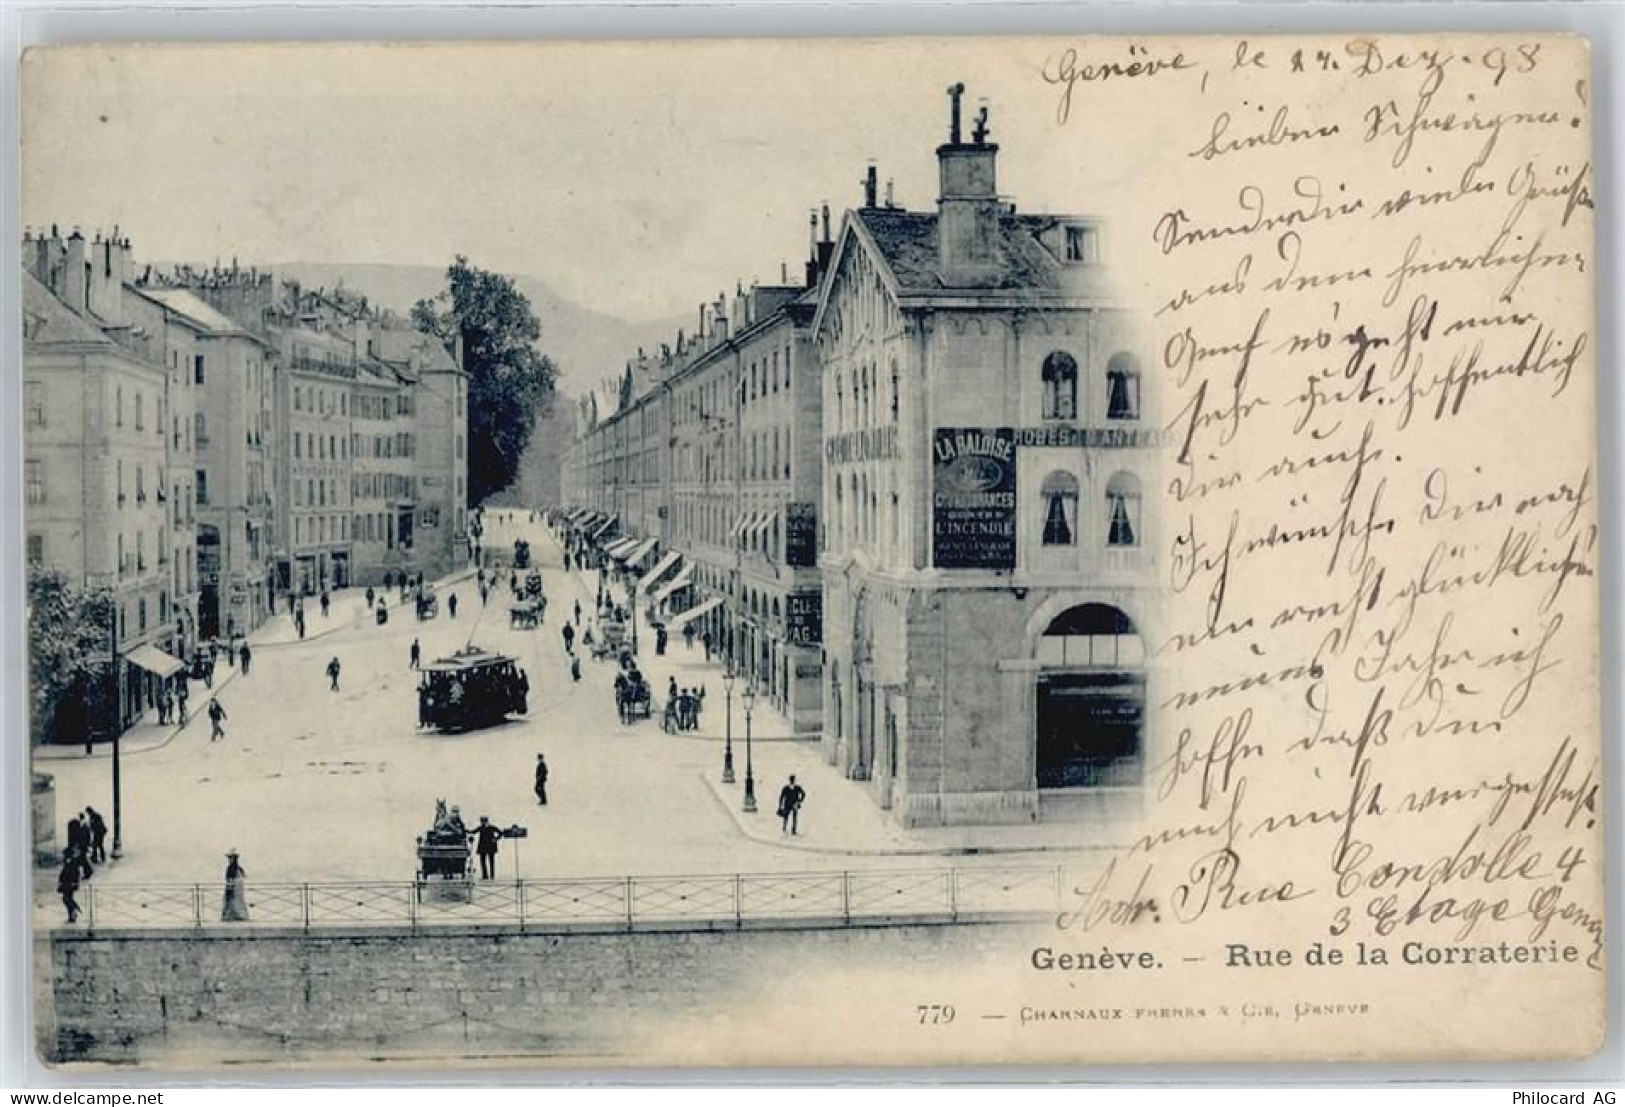 Genève, le 27. Dez. 98
Lieber Schwager!
Sende Dir viele Grüße
aus dem herrlichen
Genf es geht mir
sehr gut. hoffentlich
Dir auch.
Ich wünsche Dir noch
ein recht glückliches
neues Jahr ich
hoffe daß Du
mich nicht vergessest.
Adr. Rue Candolle 4
3 Etage Genève
LA BALOISE
L'INCENDIE
Genève. — Rue de la Corraterie
779 — CHARNAUX FRÈRES & CIE, GENÈVE
delcampe.net
Philocard AG